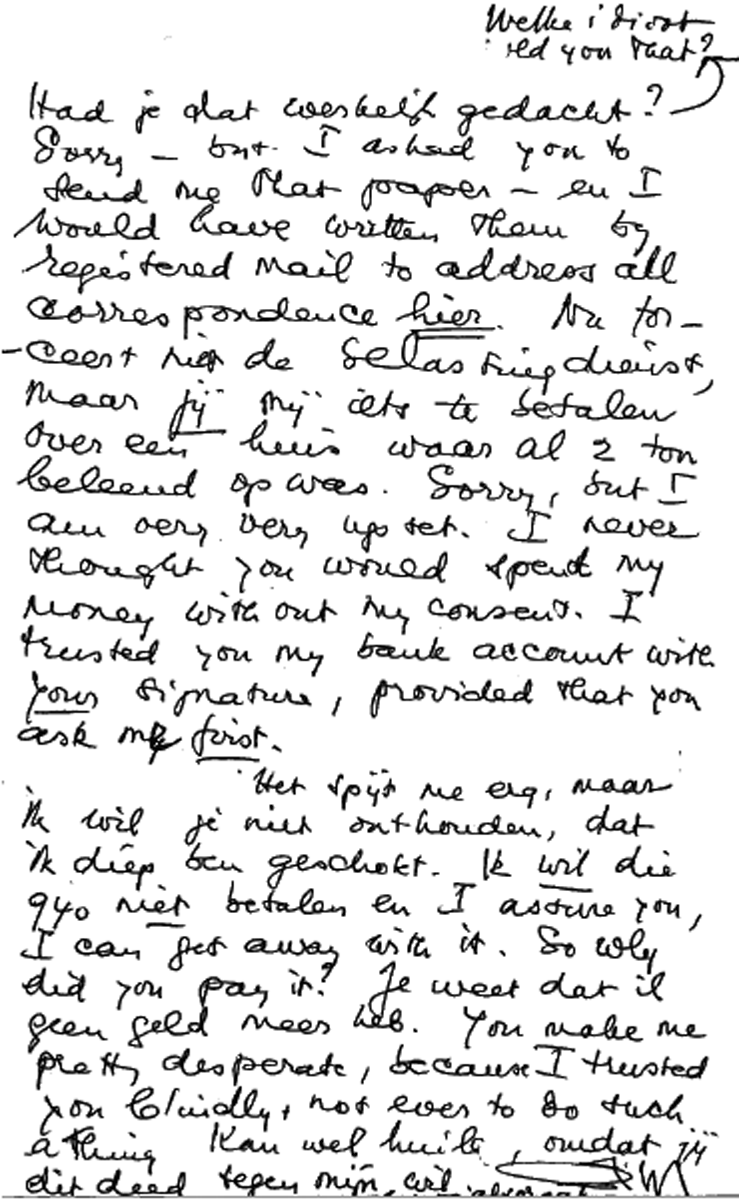 Welke idioot
told you that?
Had je dat werkelijk gedacht?
Sorry – but I asked you to
send me that paper – en I
would have written them by
registered mail to address all
correspondence hier. Nu for-
-ceert niet de Belastingdienst,
maar jij mij iets te betalen
over een huis waar al 2 ton
beleend op was. Sorry, but I
am very very upset. I never
thought you would spend my
money without my consent. I
trusted you my bank account with
your signature, provided that you
ask me first.
Het spijt me erg, maar
ik wil je niet onthouden, dat
ik diep ben geschokt. Ik wil die
940 niet betalen en I assure you,
I can get away with it. So why
did you pay it? Je weet dat ik
geen geld meer heb. You make me
pretty desperate, because I trusted
you blindly, not ever to do such
a thing Kan wel huilen, omdat jij
dit deed tegen mijn wil